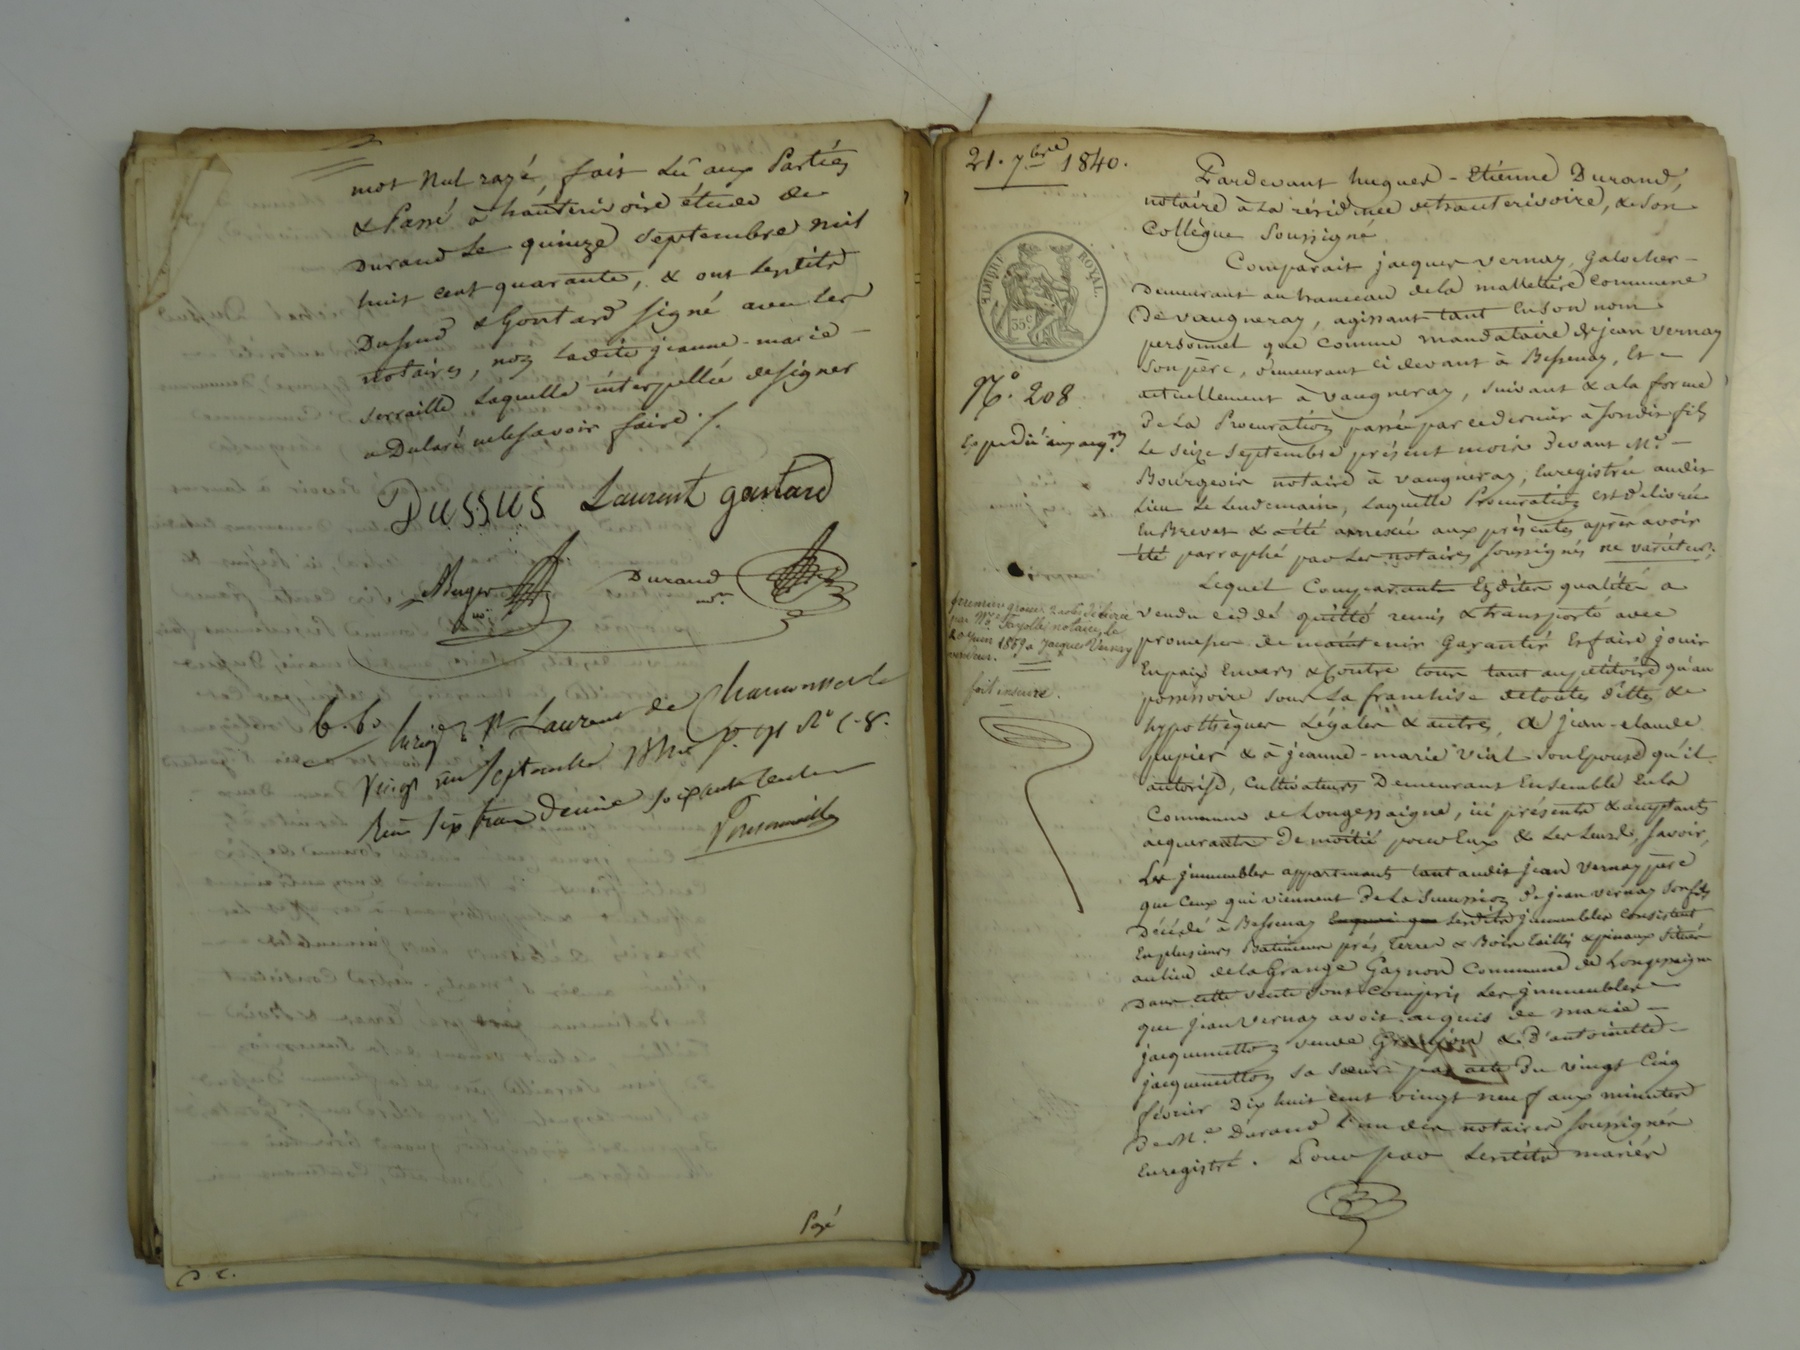 mot nul rayé, fait lu aux Parties
& Passé à hauterivoire étude de
Durand le quinze septembre mil
huit cent quarante, & ont lesdits
Dussud & Gontard signé avec les
notaires, non ladite jeanne-marie
serraille laquelle interpellée de signer
a Déclaré ne le savoir faire ./.
Dussus Laurent gontard
Durand
nre
St Laurent de Chamousset le
Vingt un Septembre
six franc Décime soixante centimes
Payé
21. 7bre 1840.
TIMBRE ROYAL.
35 c
N.o 208
Expédié aux acq.rs
Première grosse
par Me Fayolle notaire, le
20 juin 1869 a Jacques Vernay
vendeur.
fait inscrire.
Pardevant hugues-Etienne Durand,
notaire à la résidence de hauterivoire, & son
Collègue Soussigné
Comparait jacques vernay, Galocher
Demeurant au hameau de la malletiere Commune
De vaugneray, agissant tant en son nom
personnel que comme mandataire de jean vernay
Son père, demeurant ci devant à Bessenay, Et
actuellement à vaugneray, suivant & a la forme
De La Procuration passée par ce dernier à sondit fils
Le seize septembre présent mois devant Me
Bourgeois notaire à vaugneray, Enregistrée audit
Lieu le Lendemain, Laquelle Procuration est délivrée
En Brevet & a été annexée aux présentes après avoir
été parraphé par Les notaires soussignés ne varietur;
Lequel Comparant Esdites qualités a
vendu cédé quitté remis & transporté avec
promesse de maintenir Garantir Et faire jouir
En paix Envers & Contre tous tant au pétitoire qu'au
possessoire sous La franchise de toutes dettes &
hypothèques Légales & autres, a jean-claude
pupier & à jeanne-marie vial son Epouse qu'il
autorise, Cultivateurs Demeurant Ensemble En la
Commune de Longessaigne, ici présents & acceptants
acquérants De moitié pour Eux & Les Leurs, savoir,
Les jmmeubles appartenants tant audit jean vernay père
que Ceux qui viennent de La Succession de jean vernay son fils
Décédé à Bessenay Lesdits jmmeubles Consistent
En plusieurs Batiments prés, terres & Bois taillis & pinaux Situés
au lieu de la Grange Gagnon Commune de Longessaigne
Dans cette vente sont compris Les jmmeubles
que jean Vernay avoit acquis de marie
jacquemetton veuve & d'antoinette
jacquemetton sa sœur par acte Du vingt Cinq
février Dix huit cent vingt neuf aux minutes
De Me Durand L'un des notaires soussignés
Enregistré. Pour par Lesdits mariés